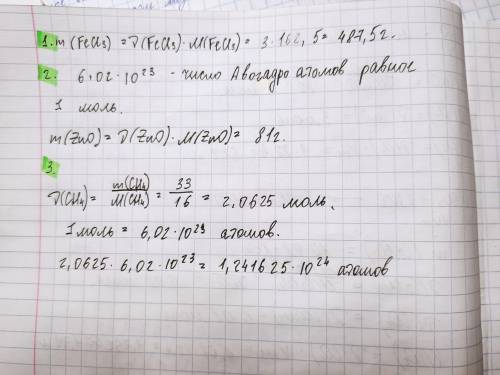 1. m (FeCl₃) = ν(FeCl₃)·M(FeCl₃) = 3·162,5 = 487,5г.
2. 6,02·10²³ - число Авогадро атомов равное
1 моль.
m(ZnO) = ν(ZnO)·M(ZnO) = 81г.
3.
ν(CH₄) = m(CH₄)/M(CH₄) = 33/16 = 2,0625 моль.
1 моль = 6,02·10²³ атомов.
2,0625·6,02·10²³ = 1,241625·10²⁴ атомов